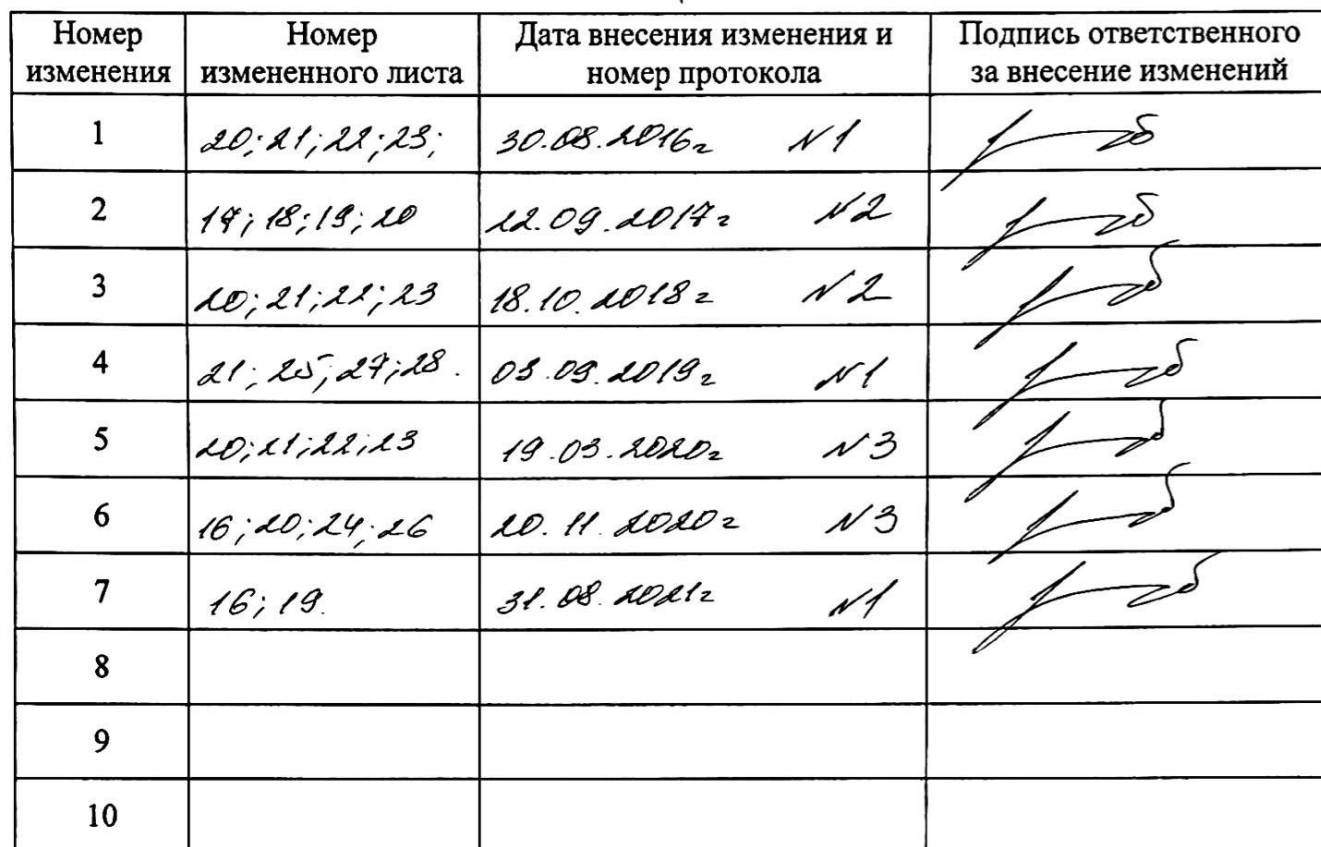 Номер изменения Номер измененного листа Дата внесения изменения и номер протокола Подпись ответственного за внесение изменений
1 20; 21; 22; 23; 30.08.2016г N1
2 17; 18; 19; 20 22.09.2017г N2
3 20; 21; 22; 23 18.10.2018г N2
4 21; 25; 27; 28. 03.09.2019г N1
5 20; 21; 22; 23 19.03.2020г N3
6 16; 20; 24; 26 20.11.2020г N3
7 16; 19. 31.08.2021г N1
8
9
10